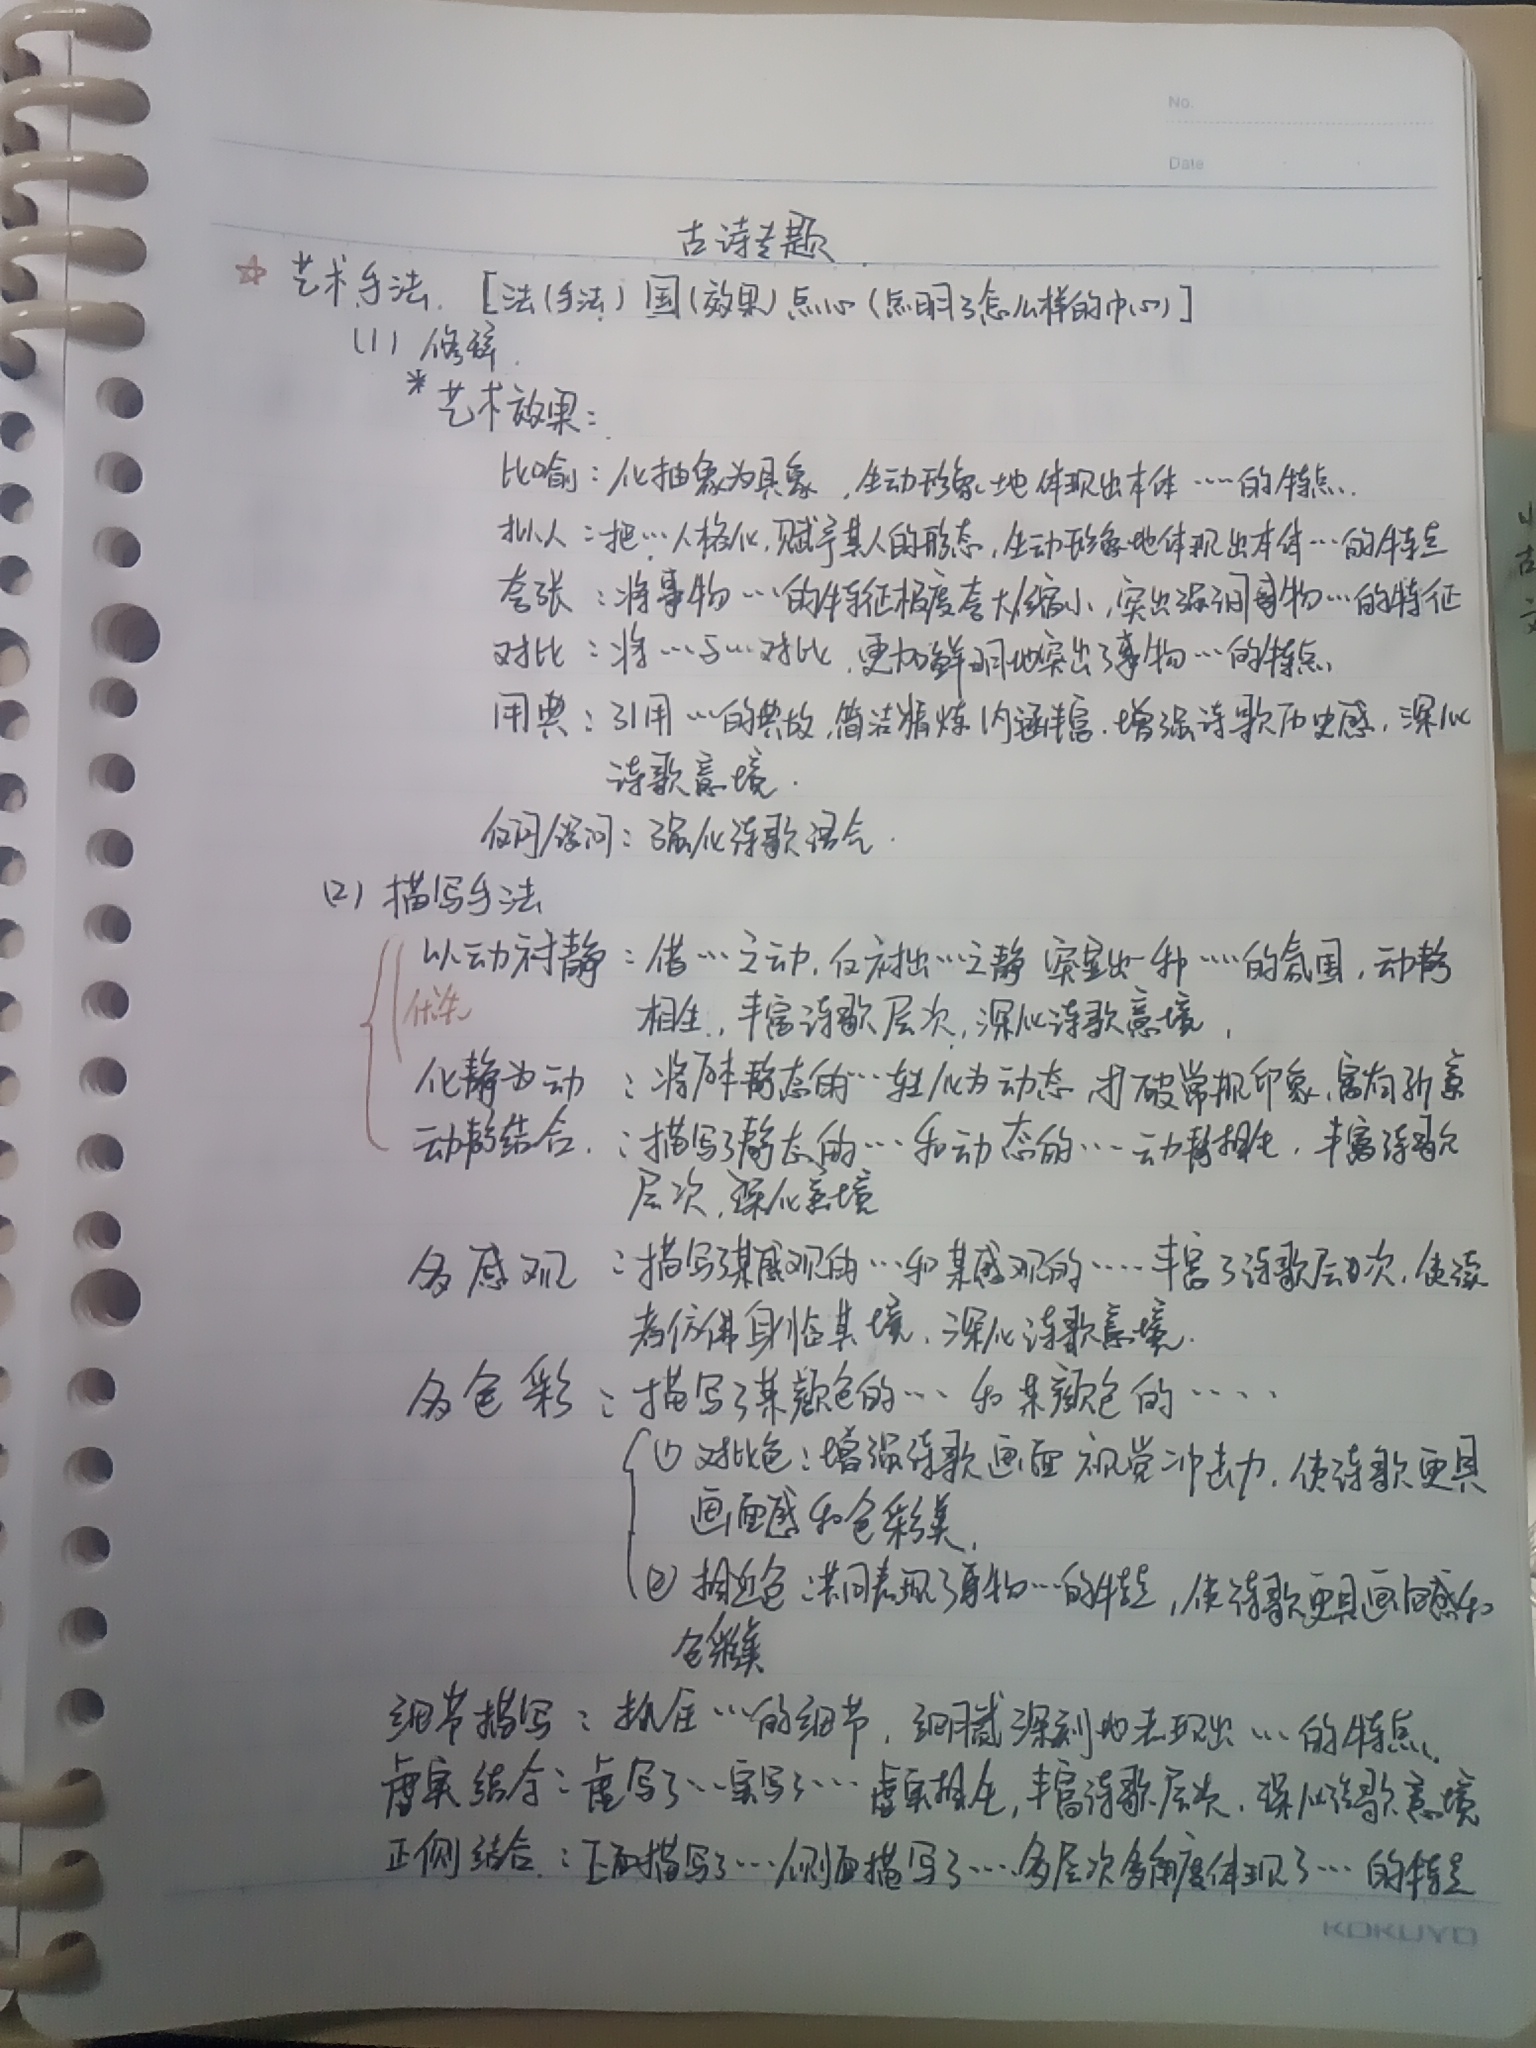 No.
Date
古诗专题
☆ 艺术手法. [法(手法) 国(效果) 点心(点明了怎么样的中心)]
(1) 修辞.
* 艺术效果:
比喻:化抽象为具象,生动形象地体现出本体……的特点.
拟人:把…人格化,赋予某人的形态,生动形象地体现出本体…的特点
夸张:将事物…的特征极度夸大/缩小,突出强调事物…的特征
对比:将…与…对比,更加鲜明地突出了事物…的特点
用典:引用…的典故,简洁精炼内涵丰富.增强诗歌历史感,深化
诗歌意境.
反问/设问:强化诗歌语气.
(2) 描写手法
以动衬静:借…之动,反衬出…之静 突出一种……的氛围,动静
优先
相生,丰富诗歌层次,深化诗歌意境,
化静为动:将原本静态的…转化为动态,打破常规印象,富有新意
动静结合.:描写了静态的…和动态的…动静相生,丰富诗歌
层次,深化意境
多感观:描写了某感观的…和某感观的……丰富了诗歌层次,使读
者仿佛身临其境,深化诗歌意境.
多色彩:描写了某颜色的…和某颜色的……
① 对比色:增强诗歌画面视觉冲击力,使诗歌更具
画面感和色彩美,
② 相近色:共同表现了事物…的特点,使诗歌更具画面感和
色彩美
细节描写:抓住…的细节,细腻深刻地表现出…的特点,
虚实结合:虚写了…实写了…虚实相生,丰富诗歌层次,深化诗歌意境
正侧结合.:正面描写了…侧面描写了…多层次多角度体现了…的特点
KOKUYO
古
文